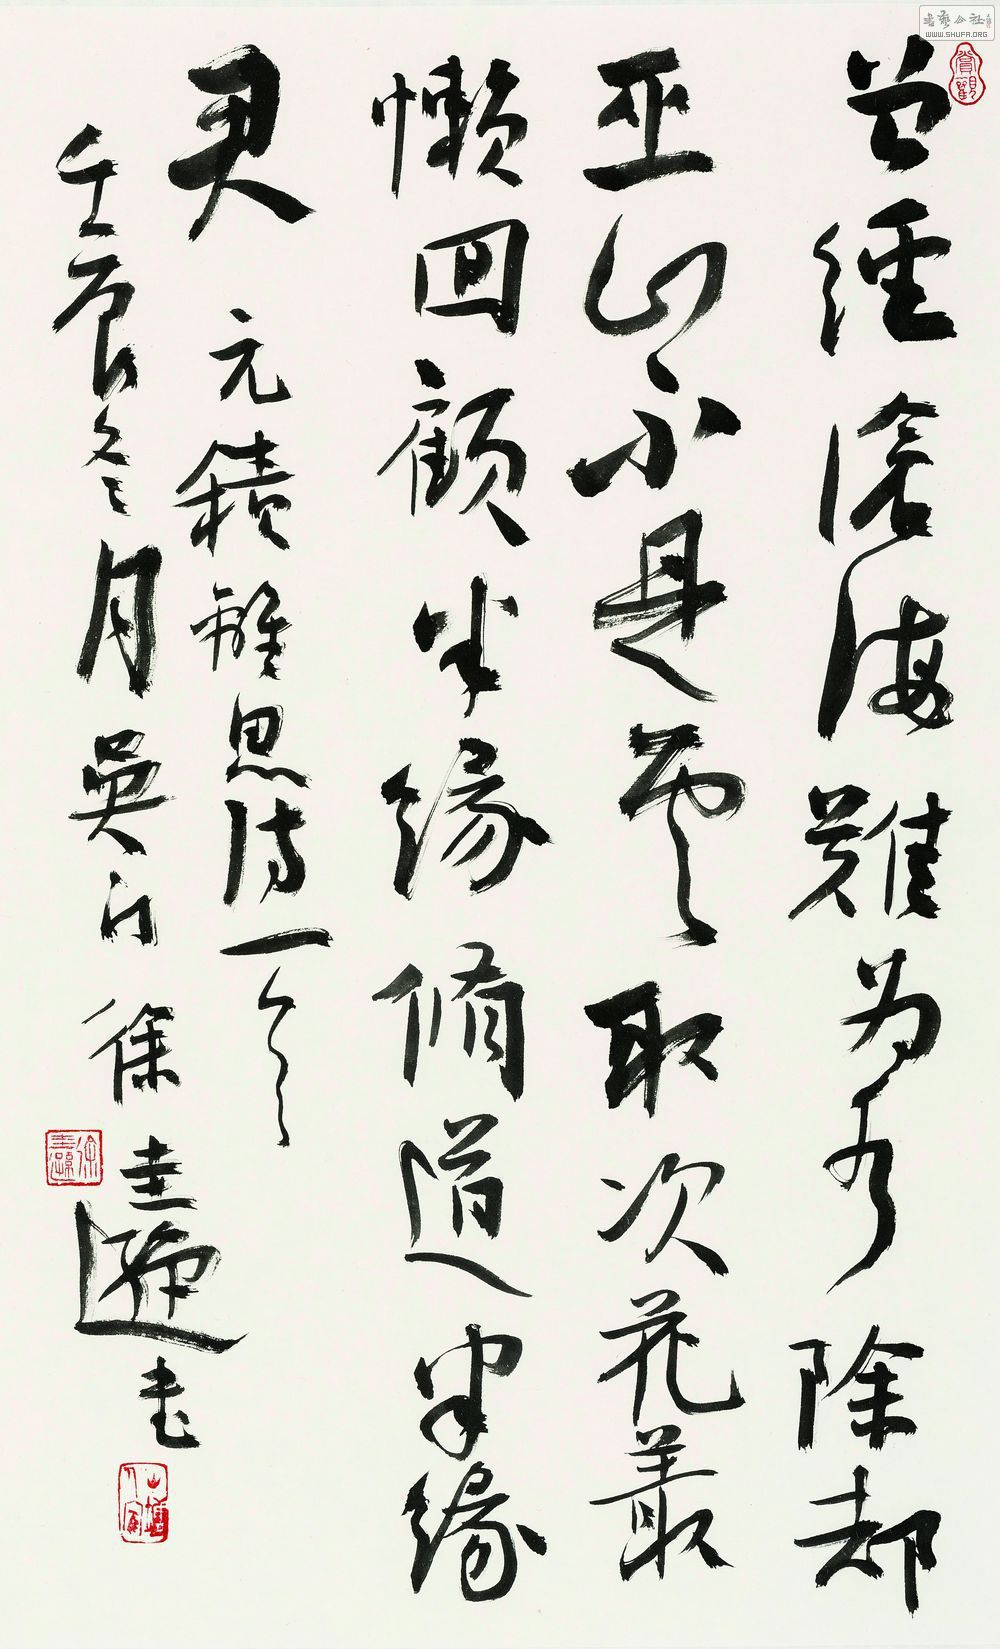 曾經滄海難为水除却
巫山不是雲取次花叢
懶回顧半緣脩道半緣
君
元稹離思詩一首
壬辰冬月吳門徐圭逊書
賞觀
書藝公社
WWW.SHUFA.ORG